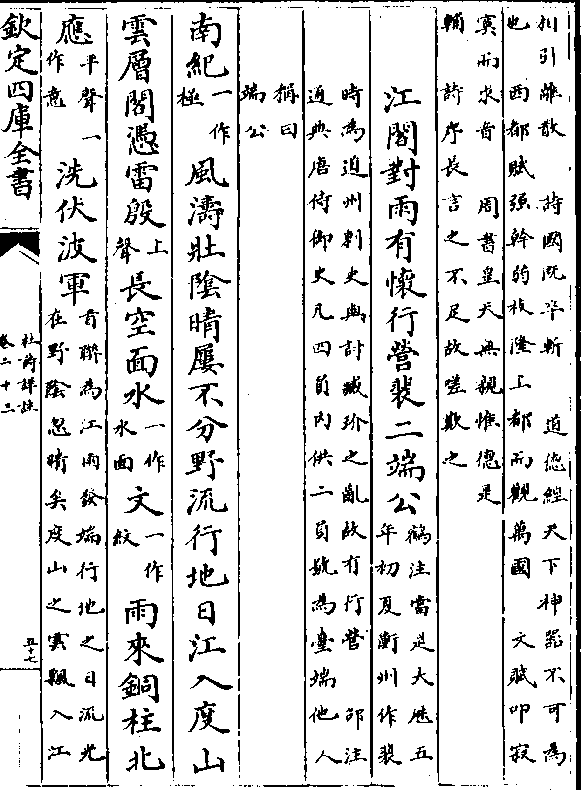 川引離散　詩國既卒斬　道德經天下神器不可為
也　西都賦强幹弱枝隆上都而觀萬國　文賦叩寂
寞而求音　周書皇天無親惟德是
輔　詩序長言之不足故嗟歎之
江閣對雨有懷行營裴二端公鶴注當是大歷五
年初夏衡州作裴
時為道州刺史與討臧玠之亂故有行營　邵注
通典唐侍御史凡四員内供二員號為臺端他人
稱曰
端公
南紀一作極風濤壯陰晴屢不分野流行地日江入度山
雲層閣憑雷殷上聲長空面水一作水面文一作紋雨來銅柱北
應平聲一作意洗伏波軍首聯為江雨發端行地之日流光
在野陰忽晴矣度山之雲飄入江
欽定四庫全書
杜詩詳註
卷二十三
五十七